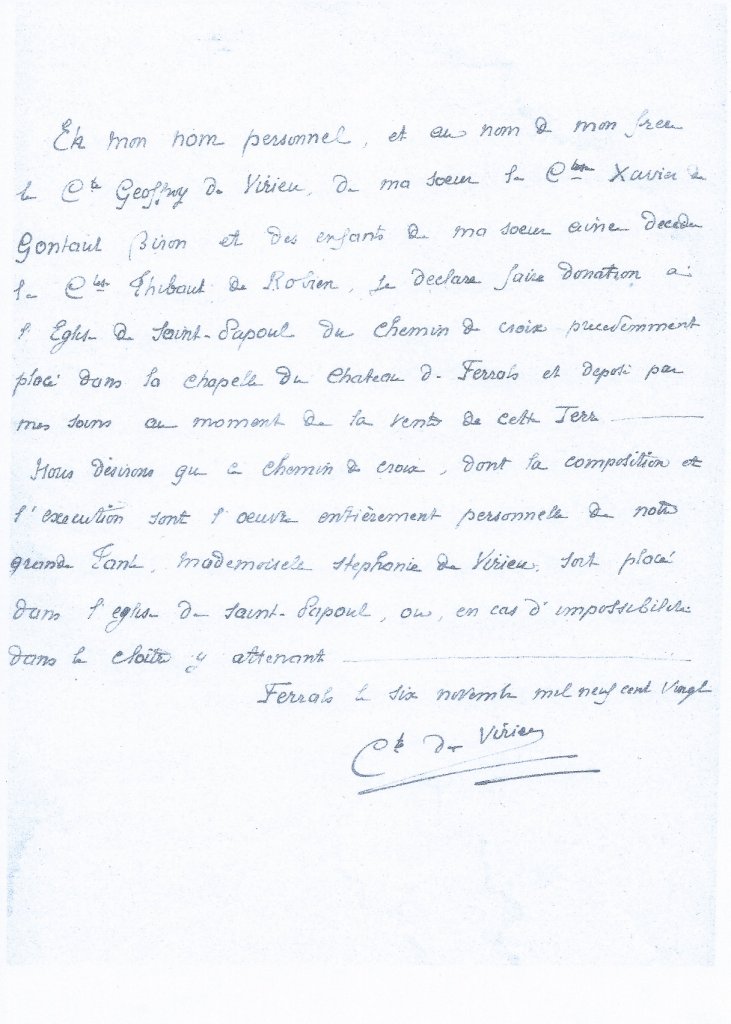 En mon nom personnel, et au nom de mon frère
le Cte Geoffroy de Virieu, de ma soeur la Ctesse Xavier de
Gontaut Biron et des enfants de ma soeur ainée decedée
la Ctesse Thibaut de Robien, je declare faire donation à
l'Eglise de Saint-Papoul du chemin de croix precedemment
placé dans la chapelle du Chateau de Ferrals et deposé par
mes soins au moment de la vente de cette Terre
Nous désirons que ce chemin de croix, dont la composition et
l'execution sont l'oeuvre entièrement personnelle de notre
grande Tante, Mademoiselle Stephanie de Virieu, soit placé
dans l'eglise de Saint-Papoul, ou, en cas d'impossibilité
dans le cloitre y attenant
Ferrals le six novembre mil neuf cent vingt
Cte de Virieu